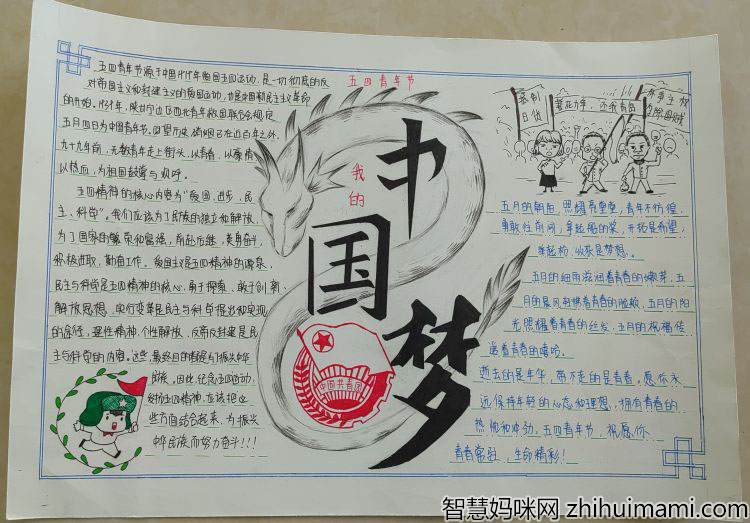 五四青年节
我的
中国梦
五四青年节源于中国1919年爱国五四运动,是一切彻底的反
对帝国主义和封建主义的爱国运动,也是中国新民主主义革命
的开始。1939年,陕甘宁边区西北青年救国联合会规定
五月四日为中国青年节。
九十九年前,无数青年走上街头,以青春,以廉
以热血,为祖国鼓与呼。
五四精神的核心内容为“爱国、进步、民
主、科学”。我们应该为了民族的独立和解放,
为了国家的繁荣和富强,前赴后继,英勇奋斗,
积极进取,勤奋工作。爱国主义是五四精神的源泉,
民主与科学是五四精神的核心,勇于探索、敢于创新、
解放思想、实行变革是民主与科学提出和实现
的途径,理性精神、个性解放、反帝反封建是民
主与科学的内容。这些,最终目的都是为了振兴中华
民族。因此,纪念五四运动,
对五四精神,应该把这
些方面结合起来,为振兴
中华民族而努力奋斗!!!
中国共青团
抵制
日货
还我青岛
外争主权
内除国贼
五月的朝阳,照耀亮堂堂,青年不彷徨,
勇敢往前闯,拿起船的桨,开拓是希望,
举起枪,收获是梦想。
五月的细雨滋润着青春的嫩芽,五
月的晨风轻拂着青春的脸颊,五月的阳
光照耀着青春的丝发,五月的祝福传
送着青春的嘻哈。
逝去的是年华,带不走的是青春。愿你永
远保持年轻的心态和理想,拥有青春的
热血和冲动,五四青年节,祝愿你
青春常驻,生命精彩!
智慧妈咪网 zhihuimami.com